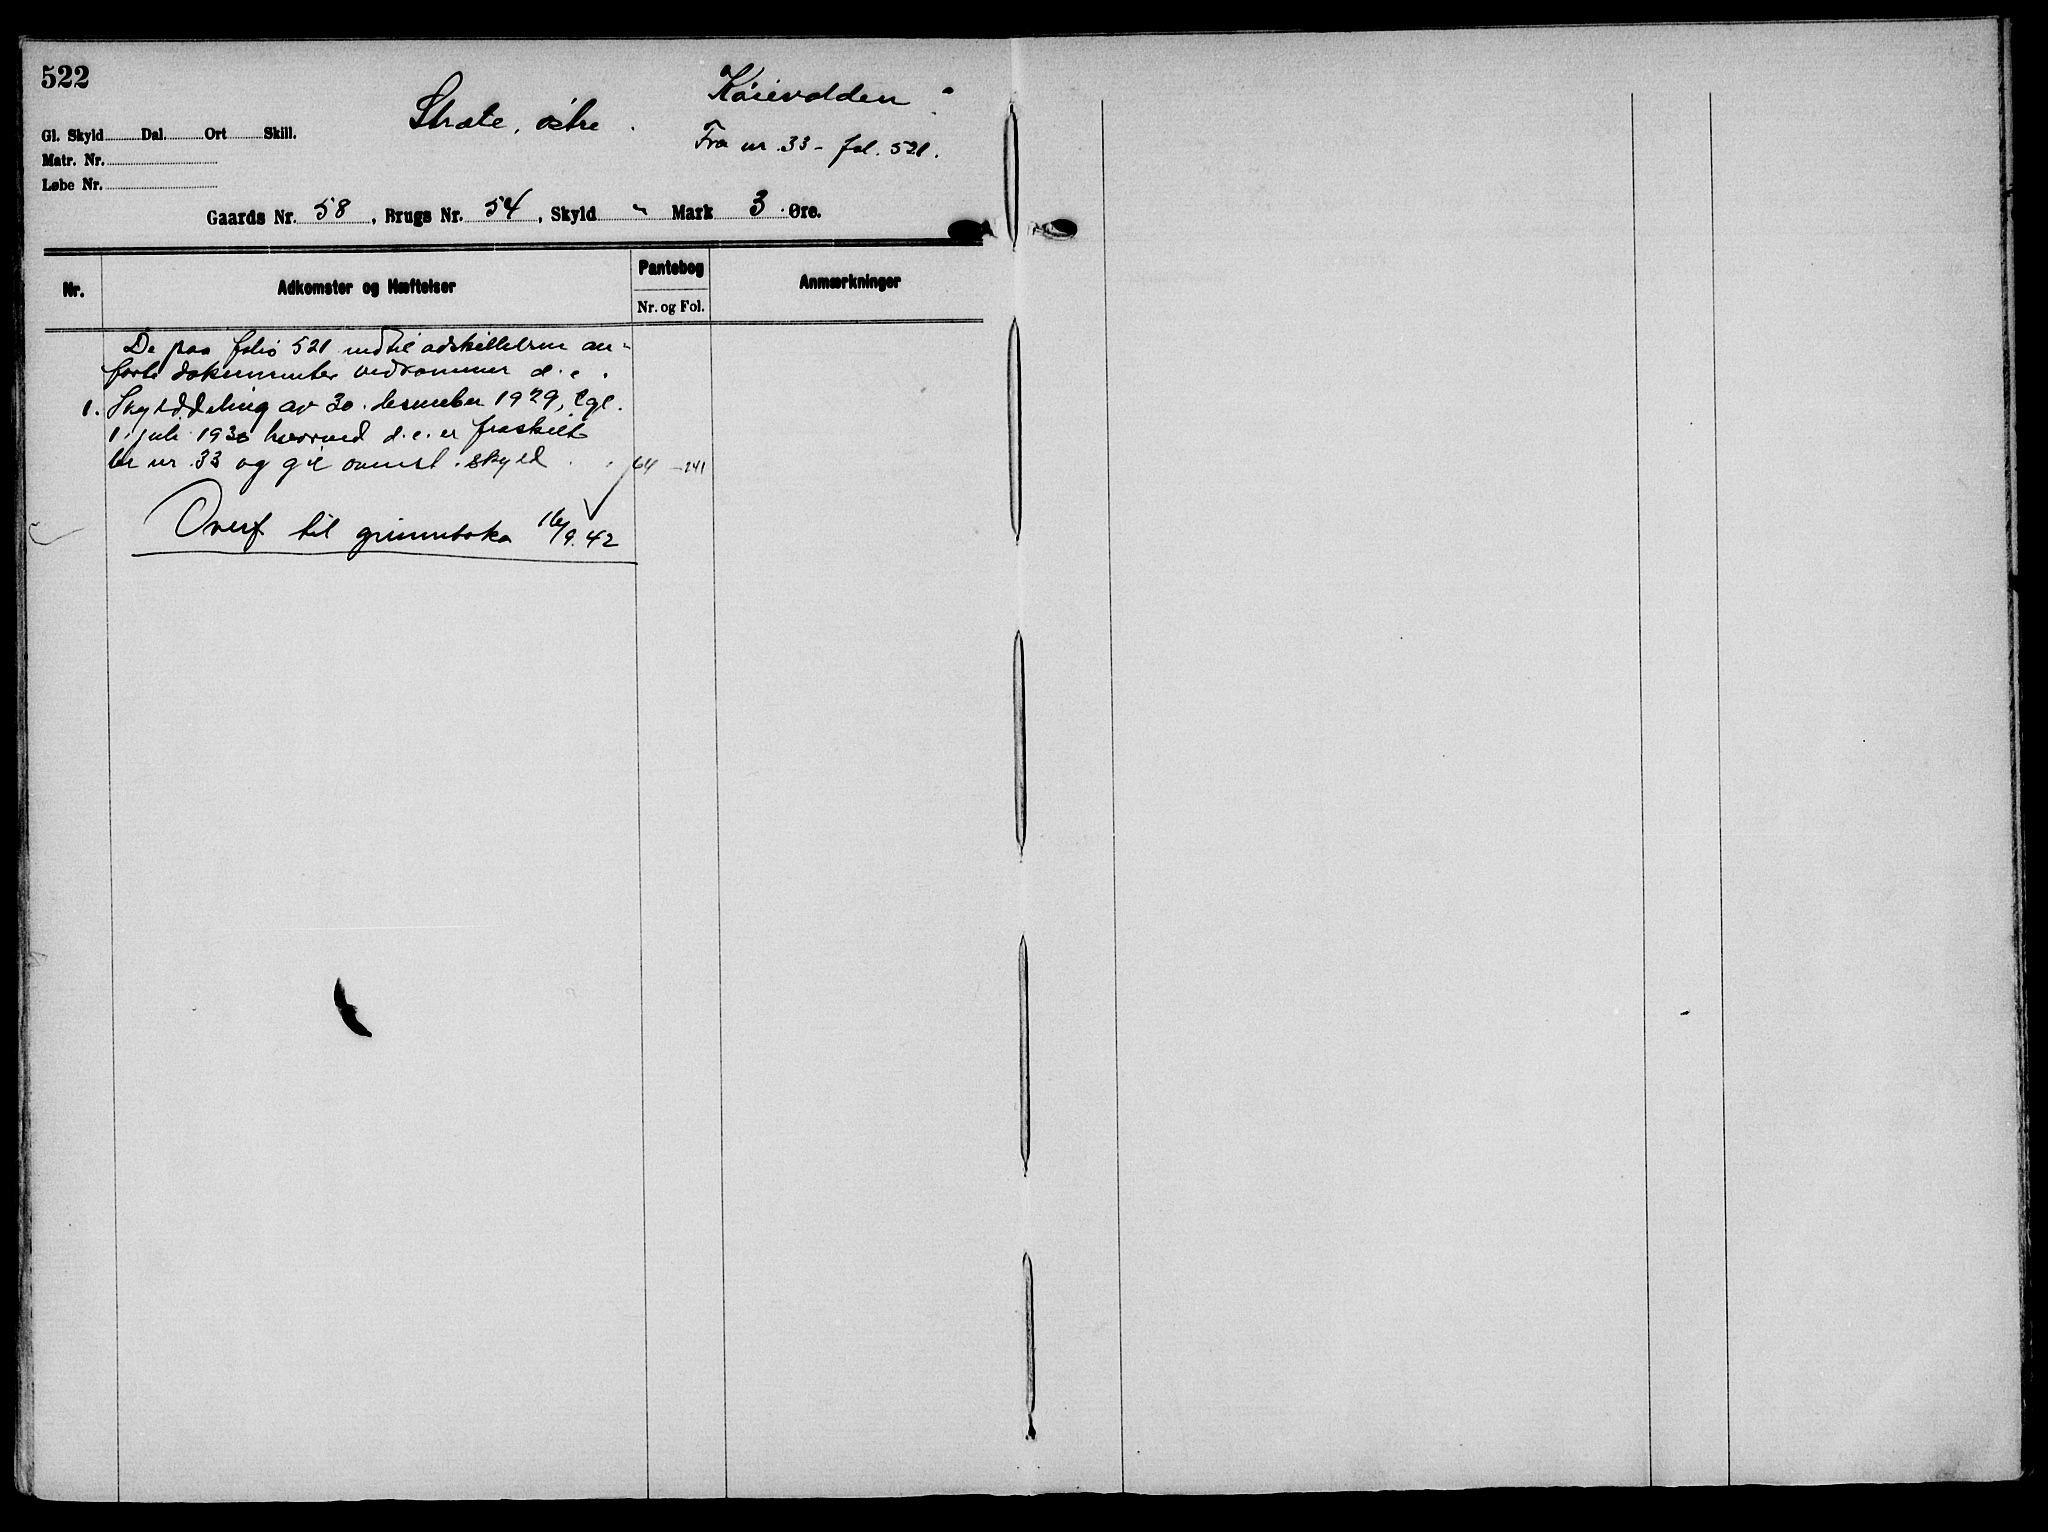 522
Stræte, østre . Køievolden
Fra nr. 33 - fol. 521.
Gl. Skyld Dal. Ort Skill.
Matr. Nr.
Løbe Nr.
Gaards Nr. 58, Brugs Nr. 54, Skyld " Mark 3 Øre.
Nr. Adkomster og Hæftelser Pantebog Anmærkninger
Nr. og Fol.
De paa folio 521 indtil adskillelsen an-
førte dokumenter vedkommer d. e.
1. Skylddeling av 30. desember 1929, tgl.
1. juli 1930 hvorved d. e. er fraskilt
br nr. 33 og git ovenst. skyld . . 64 - 241
Overf til grunnboka 16/9.42